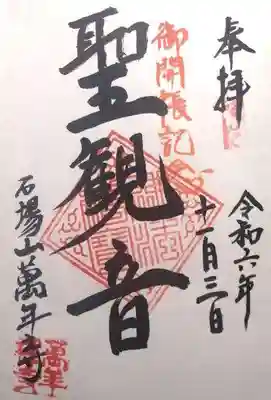 奉拝
令和六年
十一月三日
御開帳記念
聖観音
石場山萬年寺